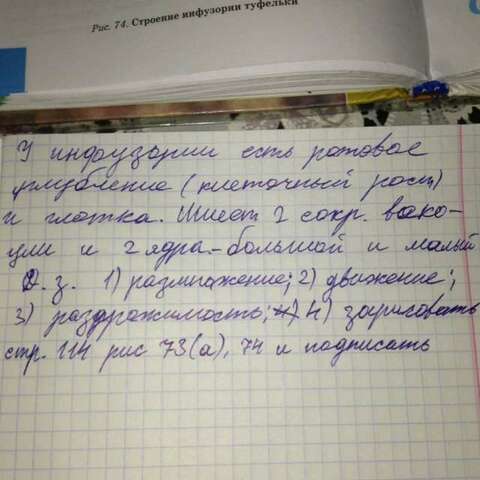 Рис. 74. Строение инфузории туфельки
У инфузории есть ротовое
углубление (клеточный рот)
и глотка. Имеет 2 сокр. вако-
ули и 2 ядра - большой и малый
Д. з. 1) размножение; 2) движение;
3) раздражимость; 4) 4) зарисовать
стр. 114 рис 73(а), 74 и подписать